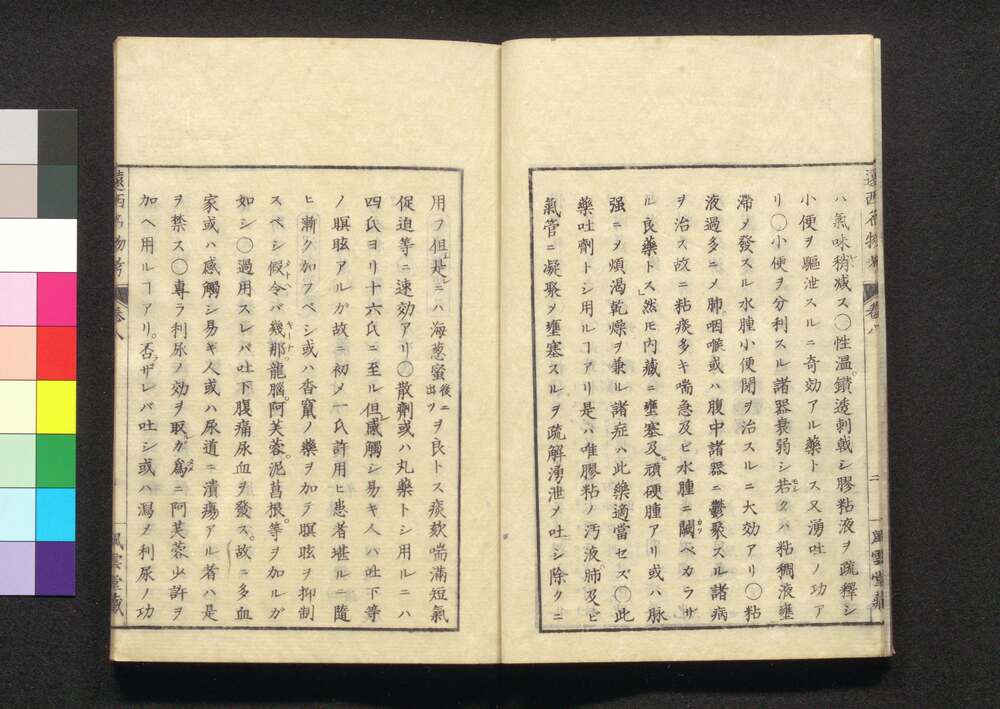 ハ氣味稍减ス〇性温鑚透刺戟シ膠粘液ヲ疏釋シ
小便ヲ驅泄スルニ奇効アル藥トス又湧吐ノ功ア
リ〇小便ヲ分利スル諸器衰弱シ若クハ粘稠液壅
滯ヲ發スル水腫小便閉ヲ治スルニ大効アリ〇粘
液過多ニメ肺咽喉或ハ腹中諸器ニ鬱聚スル諸病
ヲ治ス故ニ粘痰多キ喘急及ビ水腫ニ闕ベカラザ
ル良藥トス」然𪜈内藏ニ壅塞及頑硬腫アリ或ハ脉
强ニメ煩渇乾燥ヲ兼ル諸症ハ此藥適當セズ〇此
藥吐劑トシ用ルヿアリ是ハ唯膠粘ノ汚液肺及ビ
氣管ニ凝聚メ壅塞スルヲ疏解湧泄メ吐シ除クニ
遠西名物考 卷八 二 風雲堂藏
用フ但是ニハ海葱蜜後ニ出ヅヲ良トス痰欬喘滿短氣
促迫等ニ速効アリ〇散劑或ハ丸藥トシ用ルニハ
四氏ヨリ十六氏ニ至ル但感觸シ易キ人ハ吐下等
ノ瞑眩アルガ故ニ初メ一氏許用ヒ患者堪ルニ隨
ヒ漸ク加フベシ或ハ香竄ノ藥ヲ加テ瞑眩ヲ抑制
スベシ假令バ幾那龍腦。阿芙蓉。泥菖根。等ヲ加ルガ
如シ〇過用スレバ吐下腹痛尿血ヲ發ス。故ニ多血
家或ハ感觸シ易キ人或ハ尿道ニ潰瘍アル者ハ是
ヲ禁ス〇專ラ利尿ノ効ヲ取ガ爲ニ阿芙蓉少許ヲ
加ヘ用ルヿアリ。否ザレバ吐シ或ハ瀉メ利尿ノ功
遠西名物考 卷八 風雲堂藏